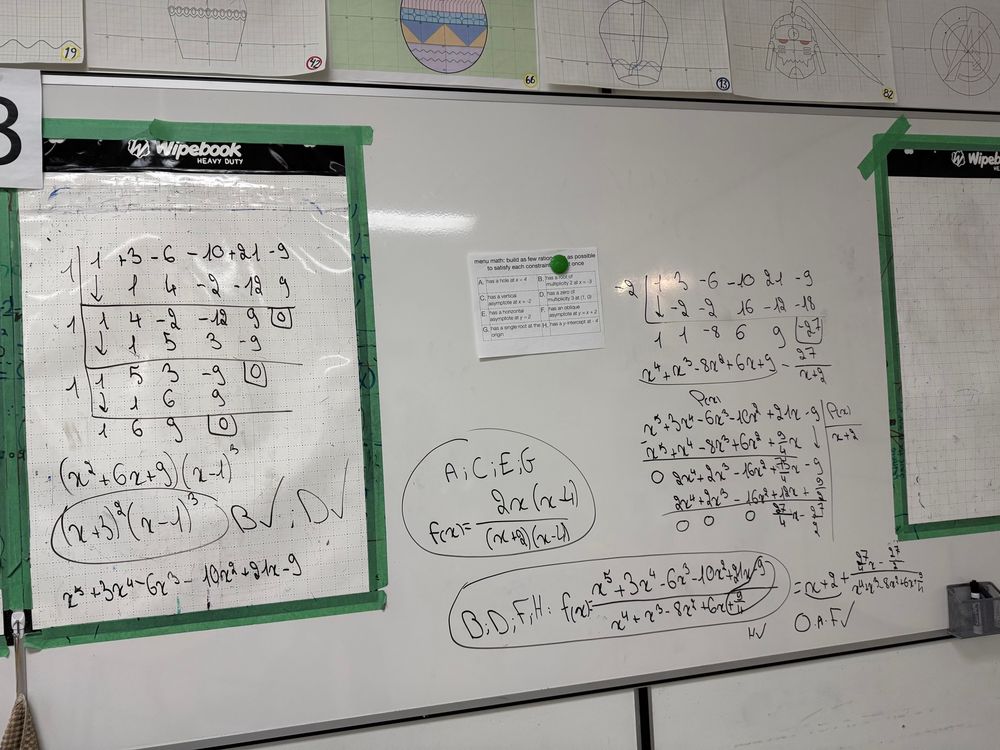 19
42
66
13
82
3
Wipebook
HEAVY DUTY
1 | 1 +3 -6 -10 +21 -9
↓ 1 4 -2 -12 9
1 | 1 4 -2 -12 9 0
↓ 1 5 3 -9
1 | 1 5 3 -9 0
↓ 1 6 9
1 6 9 0
(x²+6x+9)(x-1)³
(x+3)²(x-1)³ B✓; D✓
x⁵+3x⁴-6x³-10x²+21x-9
menu math: build as few as possible
to satisfy each once
A. has a hole at x = 4
B. has a root of multiplicity 2 at x = -3
C. has a vertical asymptote at x = -2
D. has a zero of multiplicity 3 at (1, 0)
E. has a horizontal asymptote at y = 2
F. has an oblique asymptote at y = x + 2
G. has a single root at the origin
H. has a y-intercept at -4
A;C;E;G
f(x)= 2x(x-4) / (x+2)(x-4)
-2 | 1 3 -6 -10 21 -9
↓ -2 -2 16 -12 -18
1 1 -8 6 9 -27
x⁴+x³-8x²+6x+9 - 27/(x+2)
P(x)
x⁵+3x⁴-6x³-10x²+21x-9 | P(x)
x⁵+x⁴-8x³+6x²+9/4x ↓ | x+2
0 2x⁴+2x³-16x²+ x-9
2x⁴+2x³-16x²+12x+9/2
0 0 0 27/4x-27/2
B;D;F;H: f(x)= x⁵+3x⁴-6x³-10x²+21x-9 / x⁴+x³-8x²+6x+9/4 = x+2+ 27/4x-27/2 / x⁴+x³-8x²+6x+9/4
H✓ O.A.F✓
Wipeb